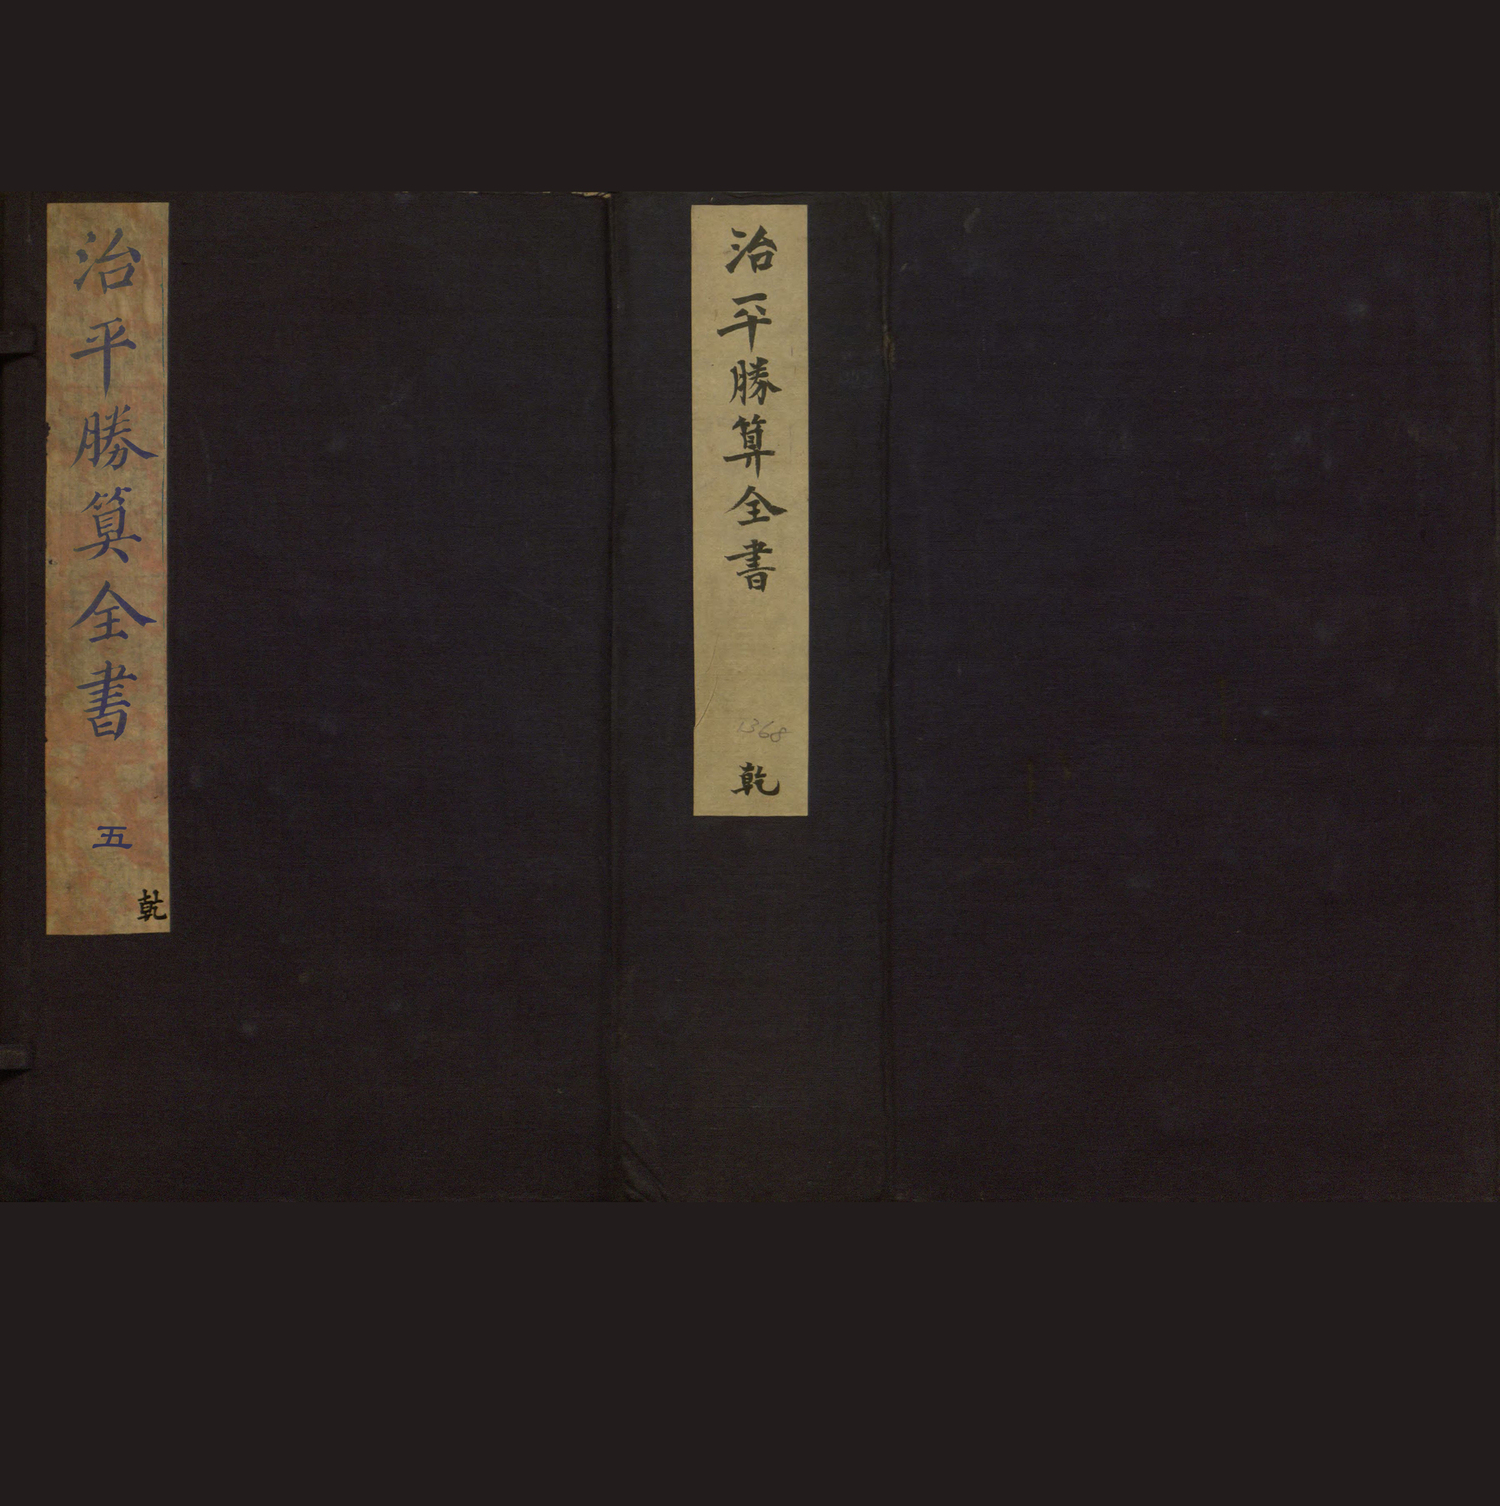 治平勝算全書
1368
乾
治平勝算全書
五
乾